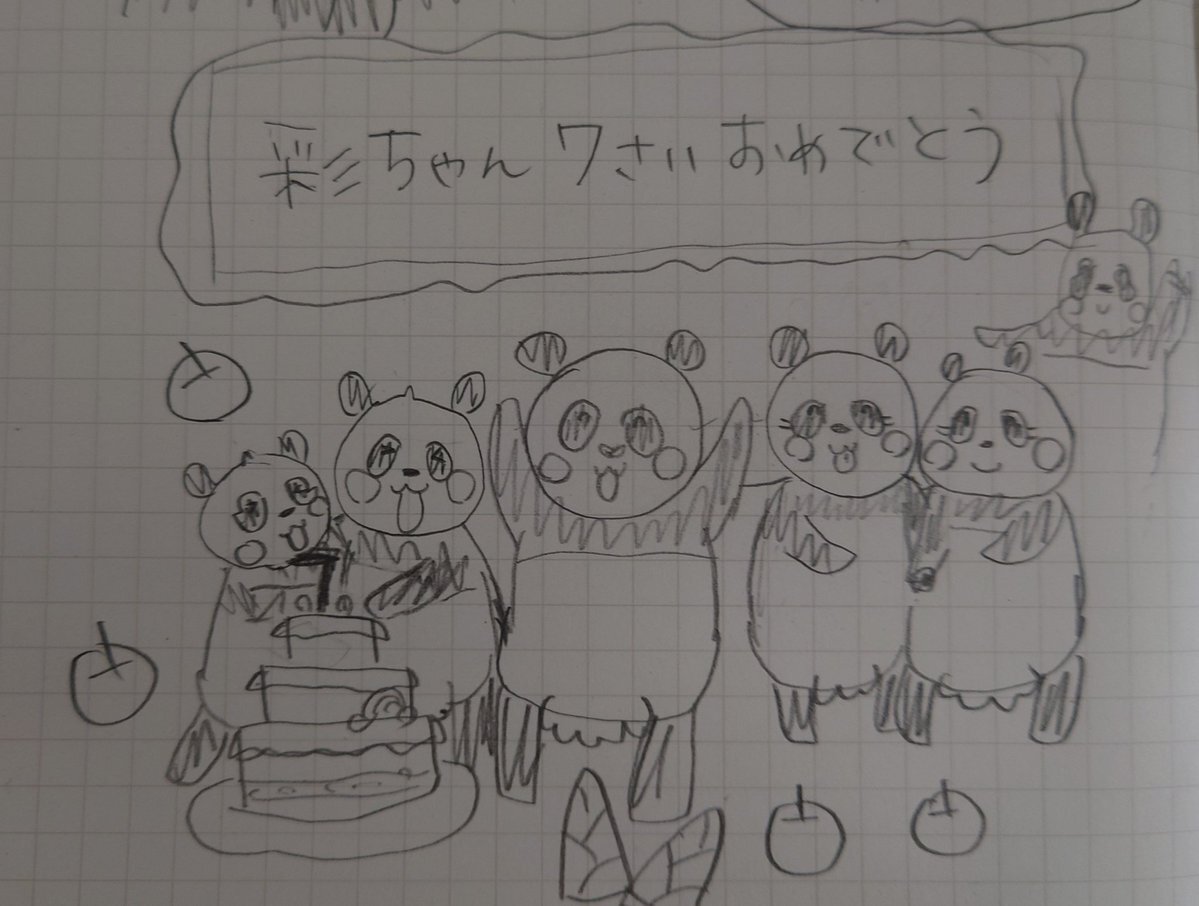 彩ちゃん 7さい おめでとう
7